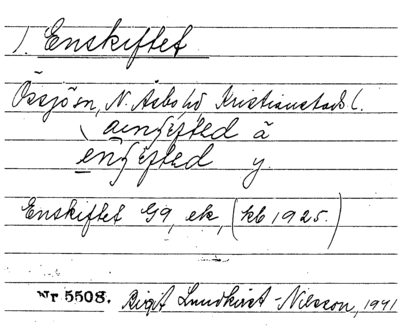 1. Enskiftet
Össjö sn, N. Åsbo hd Kristianstads l.
ä
y.
Enskiftet G9, ek, (kb 1925.)
Nr 5508. Birgit Lundkvist-Nilsson, 1941